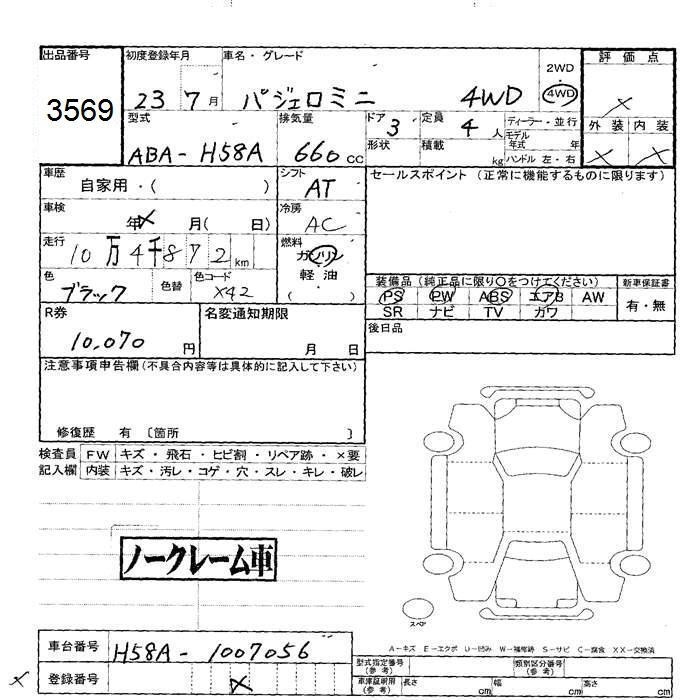 出品番号 3569
初度登録年月 23 7月
車名・グレード パジェロミニ 4WD
2WD・4WD
評価点 ×
外装 × 内装 ×
型式 ABA-H58A
排気量 660cc
ドア 3 形状
定員 4人 積載 kg
ディーラー・並行
モデル年式 年
ハンドル 左・右
車歴 自家用・( )
シフト AT
セールスポイント (正常に機能するものに限ります)
車検 年 × 月( 日)
冷房 AC
走行 10万4千872km
燃料 ガソリン 軽油 ( )
色 ブラック 色替 色コード X42
装備品(純正品に限り○をつけてください) 新車保証書
PS PW ABS エアB AW 有・無
SR ナビ TV カワ
R券 10,070円
名変通知期限 月 日
後日品
注意事項申告欄(不具合内容等は具体的に記入して下さい)
修復歴 有 〔箇所 〕
検査員 FW キズ・飛石・ヒビ割・リペア跡・×要
記入欄 内装 キズ・汚レ・コゲ・穴・スレ・キレ・破レ
ノークレーム車
スペア
車台番号 H58A-1007056
A-キズ E-エクボ U-凹み W-補修跡 S-サビ C-腐食 XX-交換済
× 登録番号 ×
型式指定番号(参考) 類別区分番号(参考)
車庫証明用(参考) 長さ cm 幅 cm 高さ cm